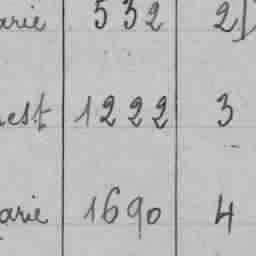 arie 532 2
est 1222 3
arie 1690 4